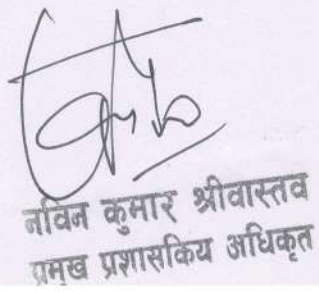 नविन कुमार श्रीवास्तव
प्रमुख प्रशासकिय अधिकृत